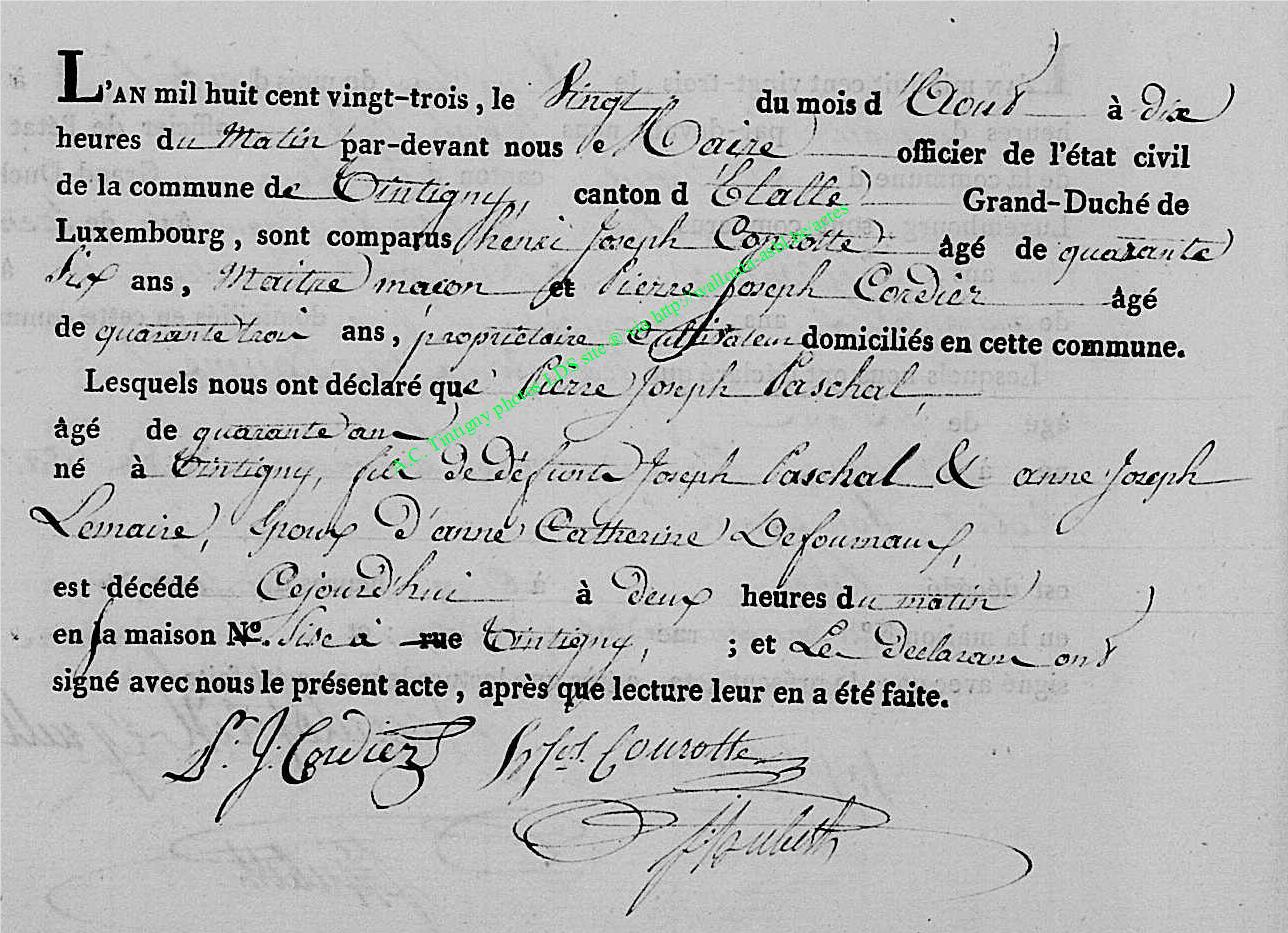 L'AN mil huit cent vingt-trois, le Vingt du mois d'Aout à dix
heures du Matin par-devant nous Maire officier de l'état civil
de la commune de Tintigny, canton d'Etalle Grand-Duché de
Luxembourg, sont comparus henri Joseph Courotte âgé de quarante
Six ans, Maitre macon et Pierre Joseph Cordier âgé
de quarante trois ans, propriétaire Cultivateur domiciliés en cette commune.
Lesquels nous ont déclaré que Pierre Joseph Paschal,
âgé de quarante ans
né à Tintigny, fils de défunts Joseph Paschal & anne Joseph
Lemaire, Epoux d'anne Catherine Defournaux,
est décédé Cejourd'hui à deux heures du matin
en sa maison N°. Sise à rue Tintigny, ; et Les Declarans ont
signé avec nous le présent acte, après que lecture leur en a été faite.
P. J. Cordier H Jph Courotte
A.C. Tintigny photos LDS site @ via http://wallonia-asbl.be/actes